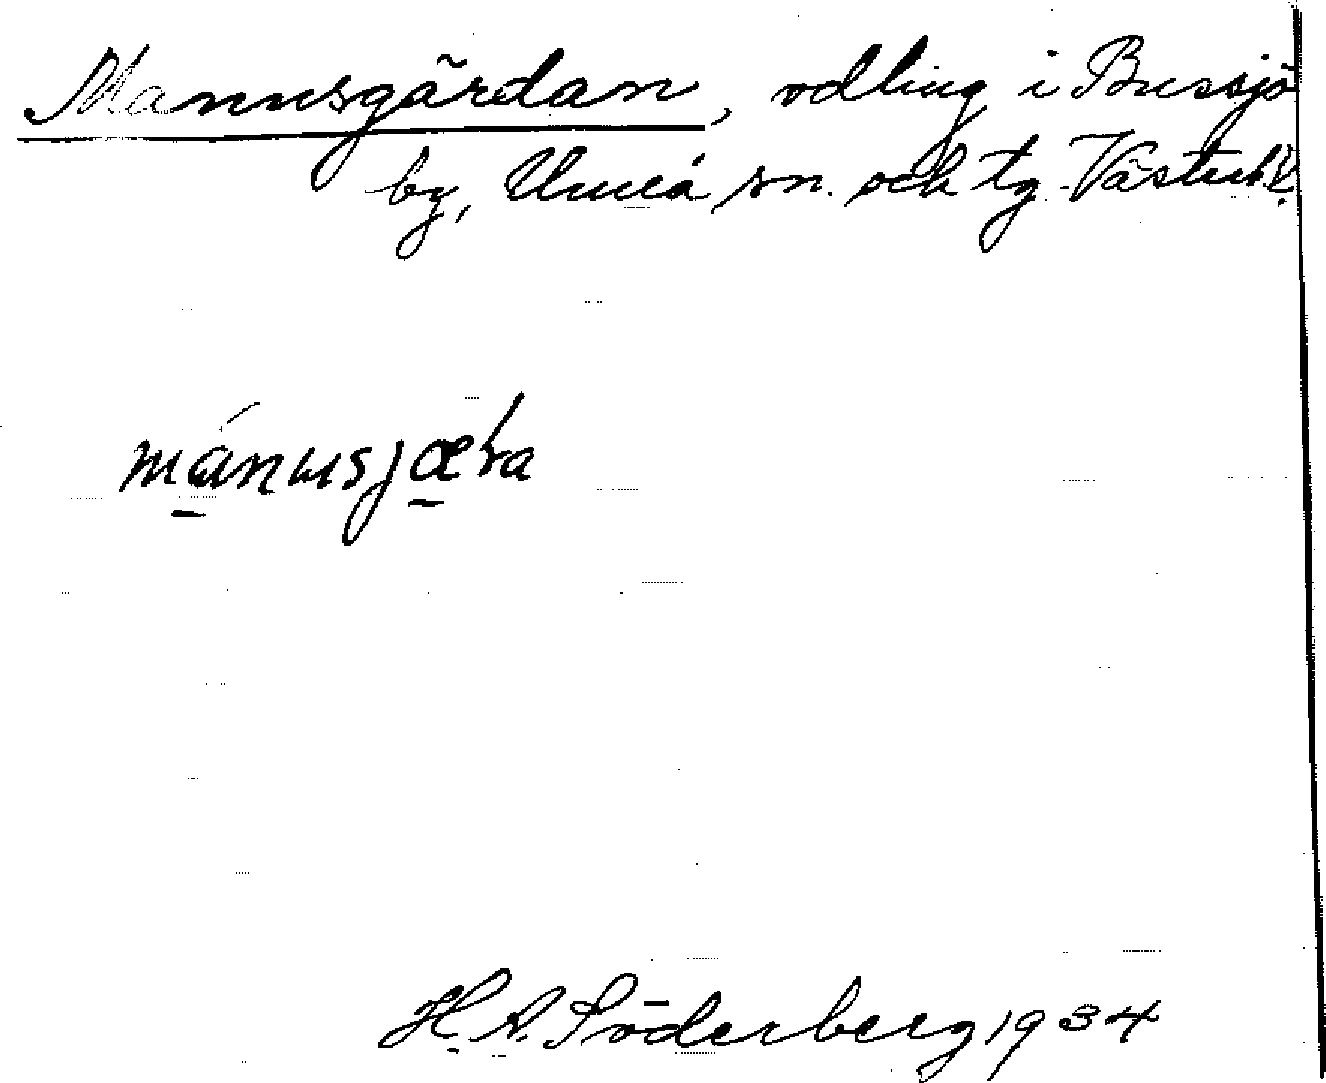 Mannusgärdan, odling i Bussjö
by, Umeå sn. och tg. Västerb.
mánusjæra
H. A. Söderberg 1934